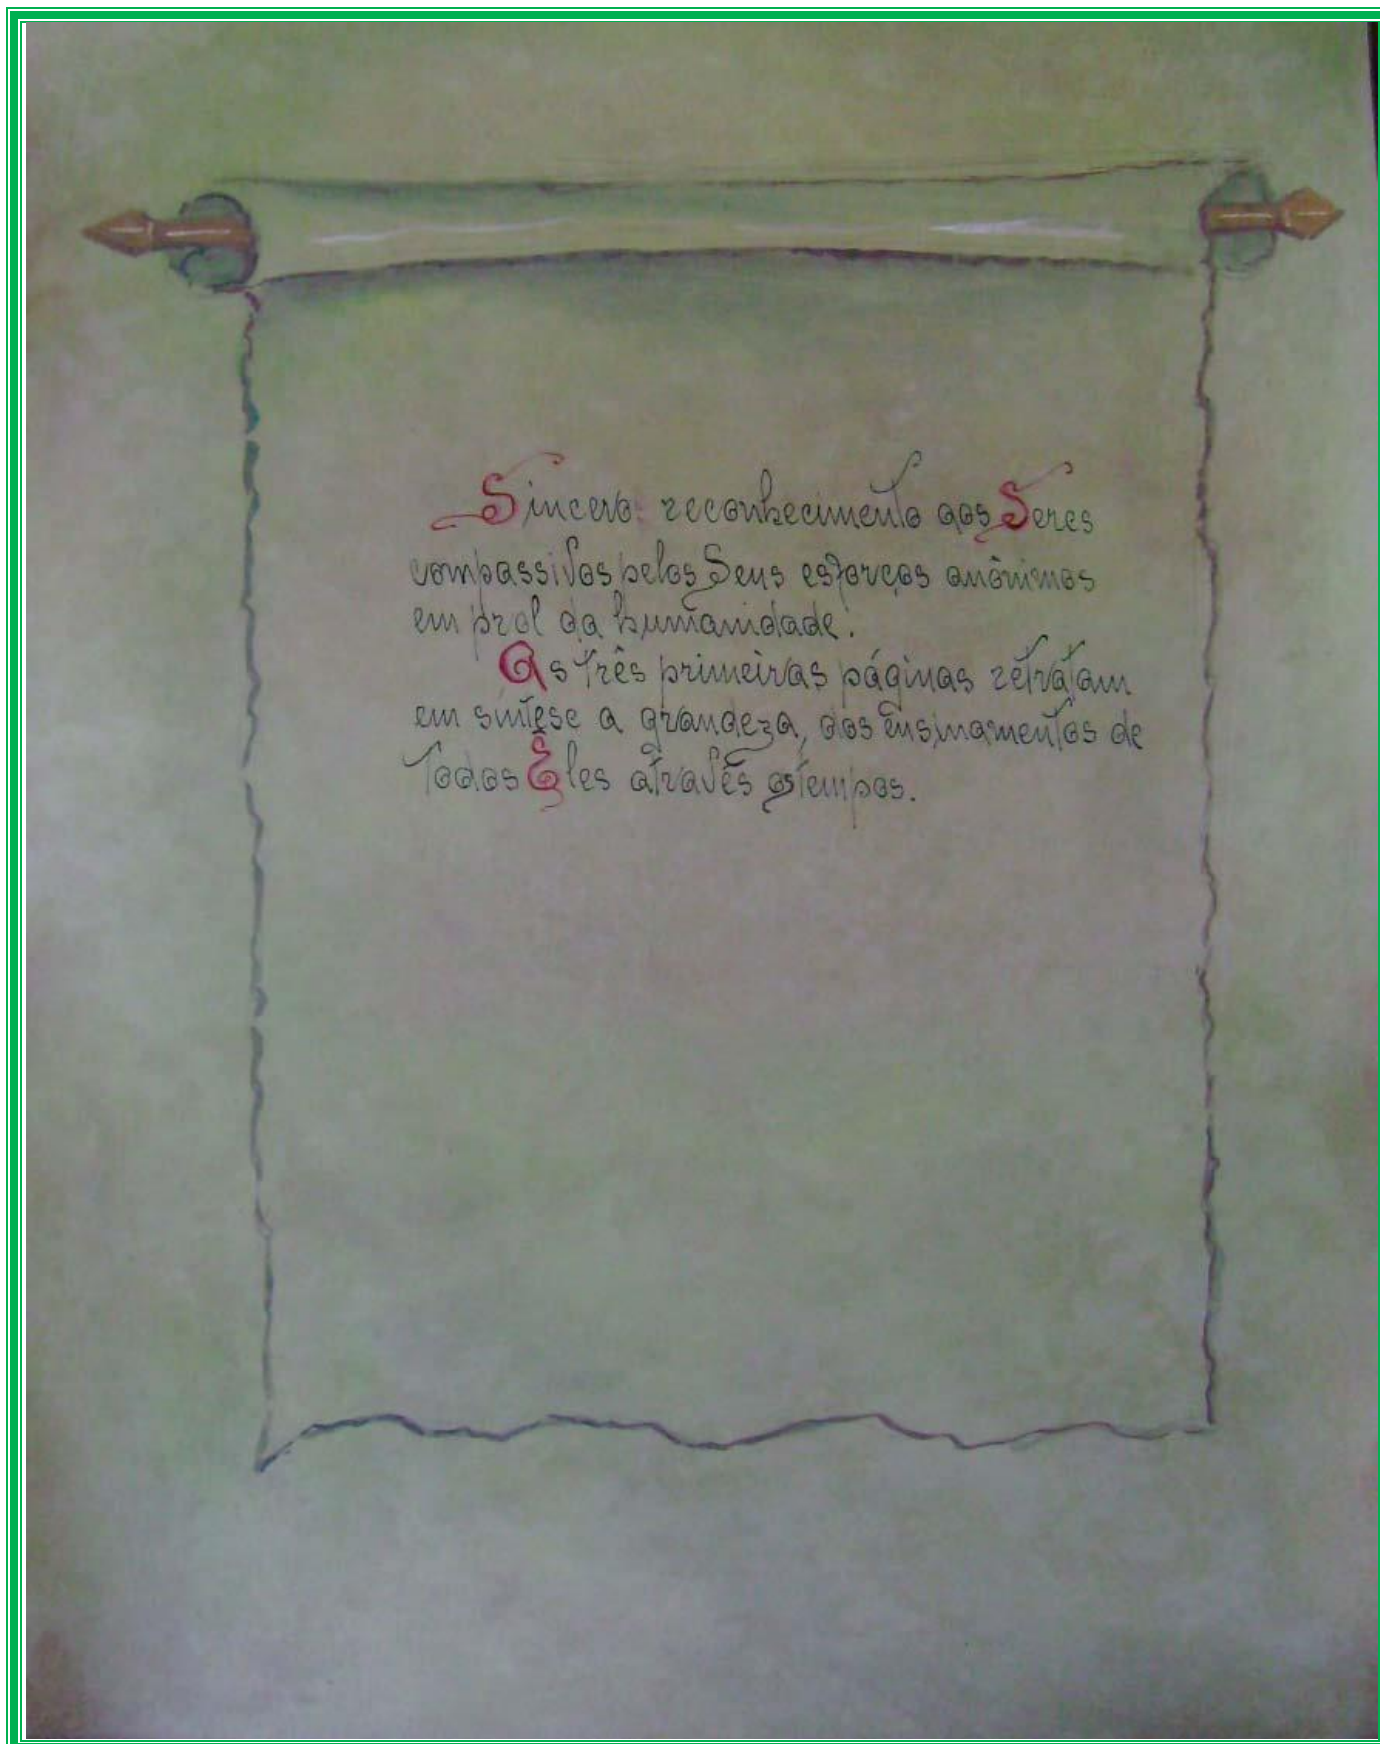 Sincero reconhecimento aos Seres
compassivos pelos Seus esforços anônimos
em prol da humanidade.
As três primeiras páginas retratam
em síntese a grandeza, dos ensinamentos de
todos Êles através os tempos.